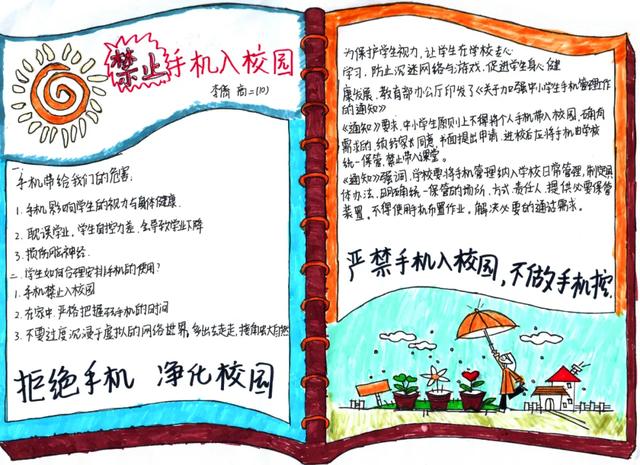 禁止手机入校园
李倩 高二(10)
一手机带给我们的危害:
1.手机影响学生的视力与身体健康.
2.耽误学业,学生自控力差,会导致学业下降
3.损伤脑神经.
二.学生如何合理安排手机的使用?
1.手机禁止入校园
2.在家中,严格把握玩手机的时间
3.不要过度沉浸于虚拟的网络世界,多出去走走,接角虫大自然
拒绝手机 净化校园
为保护学生视力,让学生在学校专心
学习,防止沉迷网络与游戏,促进学生身心健
康发展,教育部办公厅印发了《关于加强中小学生手机管理工作
的通知》
《通知》要求,中小学生原则上不得将个人手机带入校园,确有
需求的,须经家长同意,书面提出申请,进校后应将手机由学校
统一保管,禁止带入课堂。
《通知》强调,学校要将手机管理纳入学校日常管理,制定具
体办法,明确统一保管的场所、方式、责任人,提供必要保管
装置。不得使用手机布置作业。解决必要的通话需求。
严禁手机入校园,不做手机控.